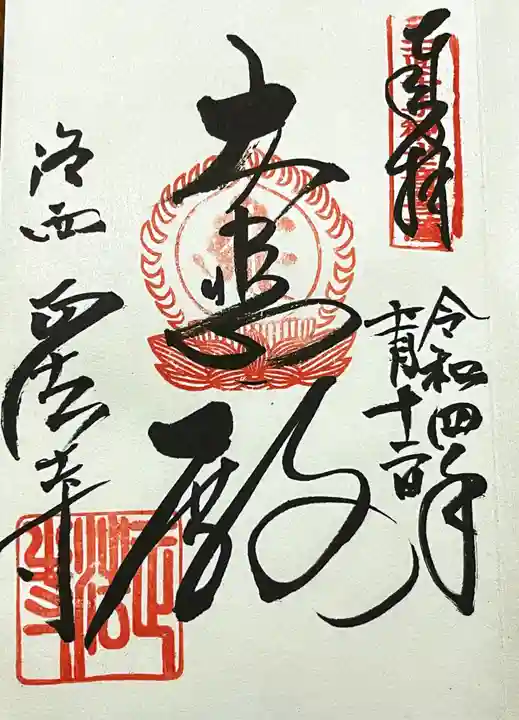 奉拝
令和四年
十一月十二日
大悲殿
洛西 正法寺